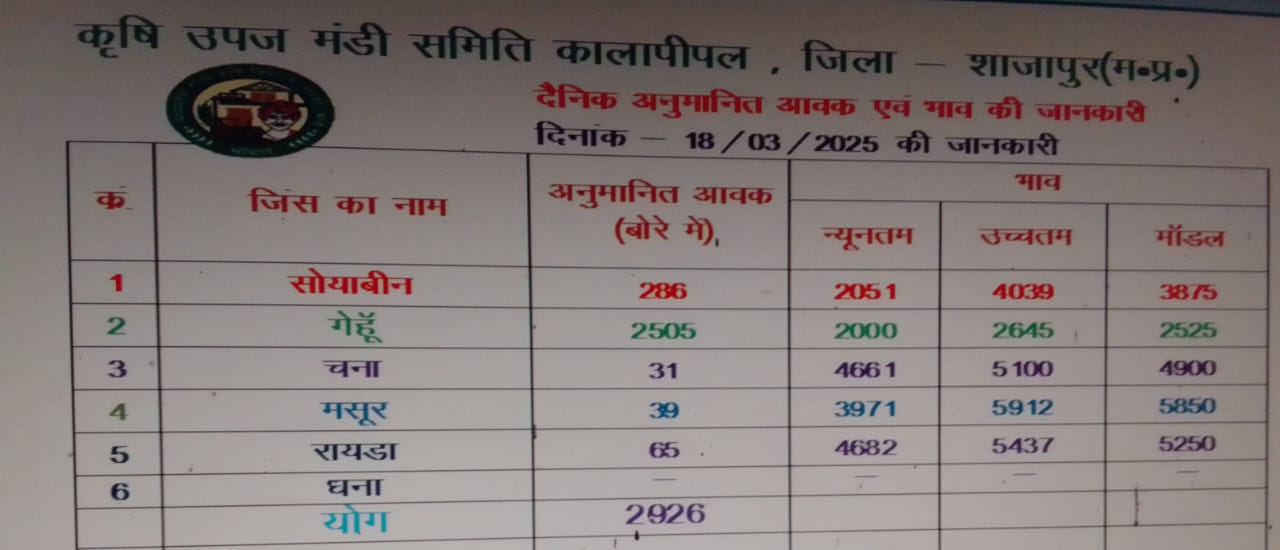 कृषि उपज मंडी समिति कालापीपल , जिला – शाजापुर(म॰प्र॰)
दैनिक अनुमानित आवक एवं भाव की जानकारी
दिनांक – 18/03/2025 की जानकारी
कं. जिंस का नाम अनुमानित आवक (बोरे में), भाव
न्यूनतम उच्चतम मॉडल
1 सोयाबीन 286 2051 4039 3875
2 गेहूॅ 2505 2000 2645 2525
3 चना 31 4661 5100 4900
4 मसूर 39 3971 5912 5850
5 रायडा 65 4682 5437 5250
6 धना – – – –
योग 2926